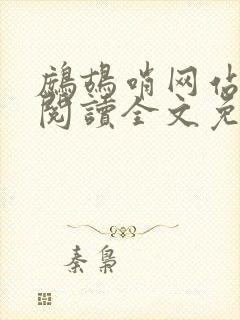 鷓鴣哨网估
閱讀全文免
秦梟